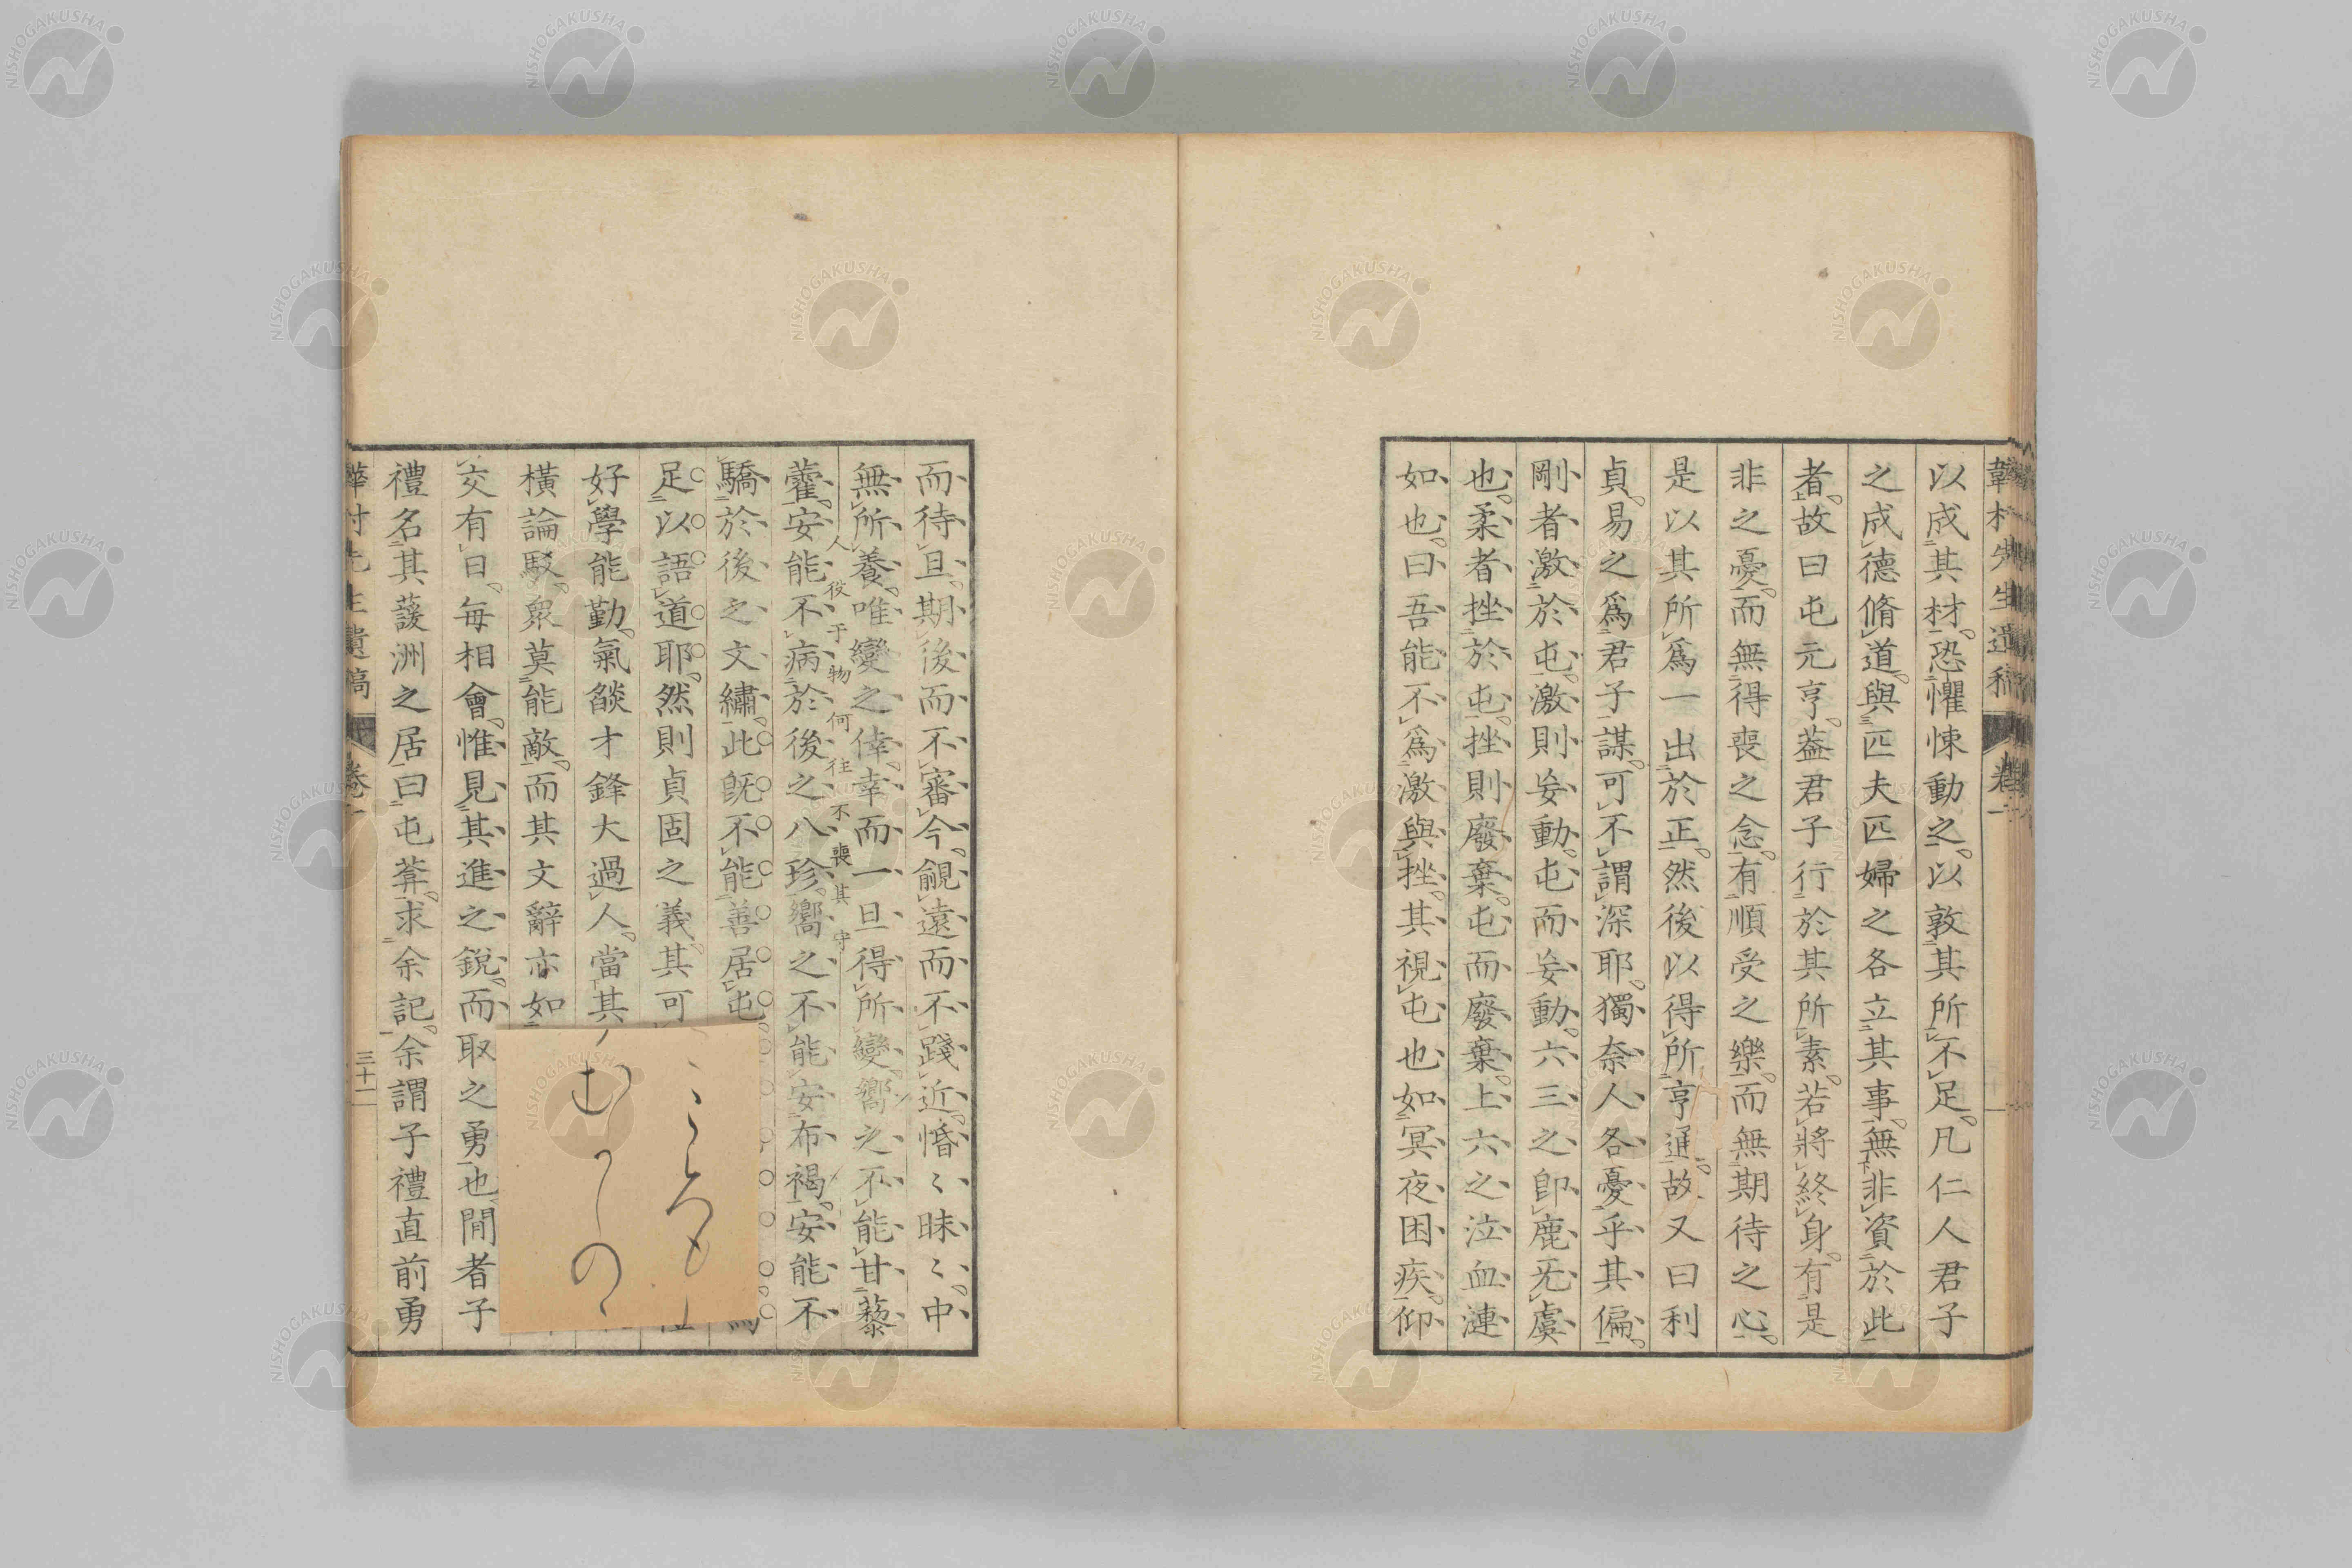 以成其材恐懼悚動之以敦其所不足凡仁人君子
之成德脩道與匹夫匹婦之各立其事無非資於此
者故曰屯元亨葢君子行於其所素若將終身有是
非之憂而無得喪之念有順受之樂而無期待之心
是以其所爲一出於正然後以得所亨通故又曰利
貞易之爲君子謀可不謂深耶獨奈人各憂乎其偏
剛者激於屯激則妄動屯而妄動六三之卽鹿无虞
也柔者挫於屯挫則廢棄屯而廢棄上六之泣血漣
如也曰吾能不爲激與挫其視屯也如冥夜困疾仰
而待旦期後而不審今覦遠而不踐近惛〻昧〻中
無所養唯變之倖幸而一旦得所變嚮之不能甘藜
人役于物何往不喪其守
藿安能不病於後之八珍嚮之不能安布褐安能不
驕於後之文繡此旣不能善居屯
足以語道耶然則貞固之義其可
好學能勤氣燄才鋒大過人當其
橫論駁衆莫能敵而其文辭亦如
交有日每相會惟見其進之銳而取之勇也間者子
禮名其蘐洲之居曰屯葊求余記余謂子禮直前勇
先生遺稿 卷一 三十一
むかしの
NISHOGAKUSHA